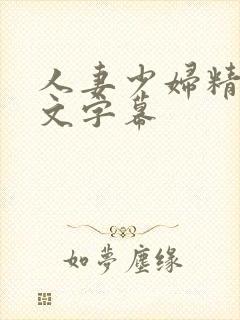 人妻少婦精
文字幕
如夢塵緣